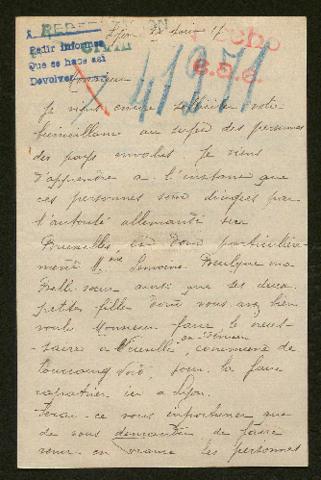 Lyon
Pedir informes
Que se hace así
Devolver
41971
Monsieur
Je viens encore solliciter votre
bienveillance au sujet des personnes
des pays envahis je viens
d'apprendre à l'instant que
ces personnes sont dirigées par
l'autorité allemande sur
Bruxelles, et donc particulière-
ment Mme Lemoine ma
Belle sœur ainsi que les deux
petites filles dont vous avez bien
voulu Monsieur faire le néces-
saire à commune de
Tourcoing Nord, pour la faire
rapatrier ici à Lyon.
Serai-ce vous importuner que
de vous demander de faire
venir en France les personnes